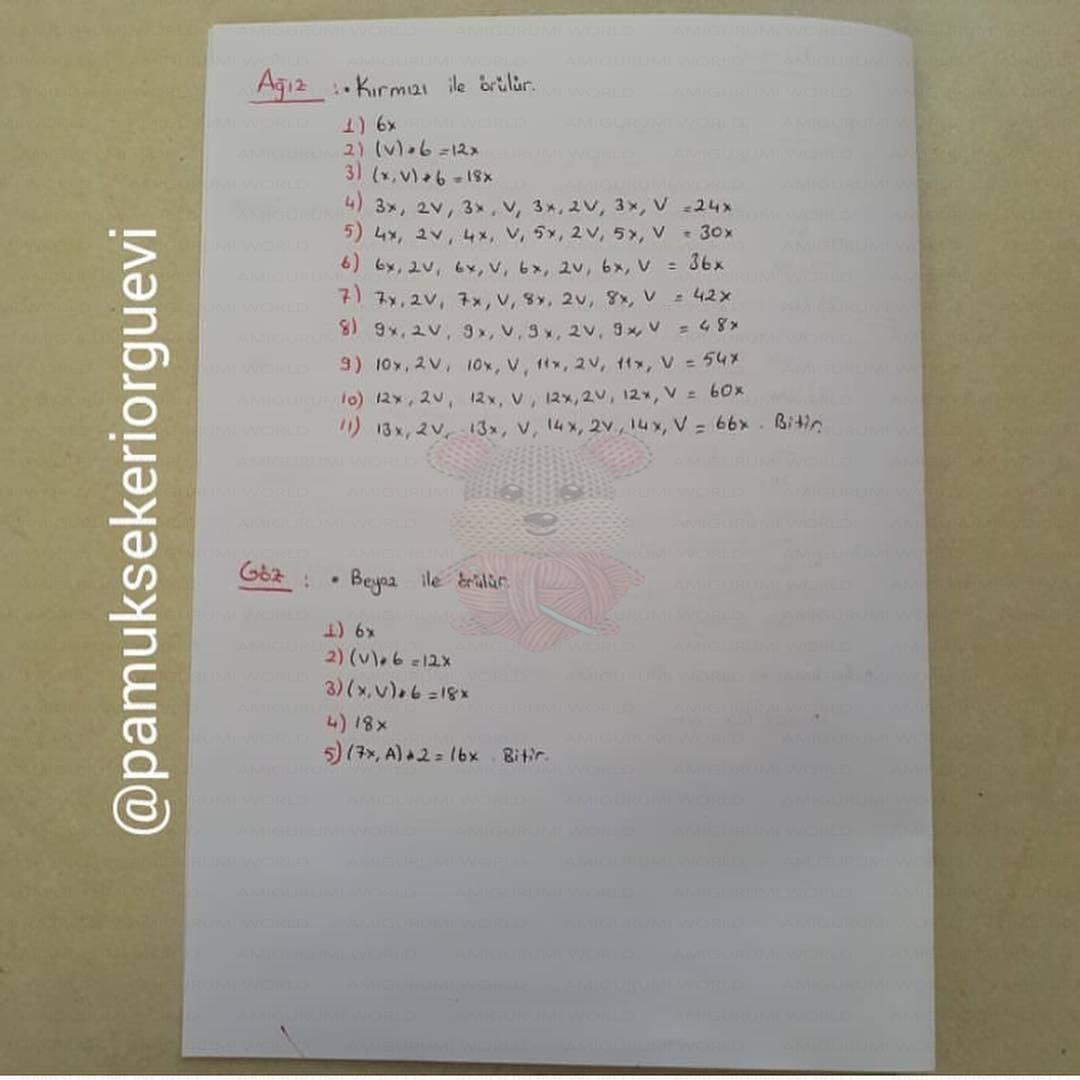 Ağız : • Kırmızı ile örülür.
1) 6x
2) (V)*6 =12x
3) (x,V)*6 =18x
4) 3x, 2V, 3x, V, 3x, 2V, 3x, V =24x
5) 4x, 2V, 4x, V, 5x, 2V, 5x, V = 30x
6) 6x, 2V, 6x, V, 6x, 2V, 6x, V = 36x
7) 7x, 2V, 7x, V, 8x, 2V, 8x, V = 42x
8) 9x, 2V, 9x, V, 9x, 2V, 9x, V = 48x
9) 10x, 2V, 10x, V, 11x, 2V, 11x, V = 54x
10) 12x, 2V, 12x, V, 12x, 2V, 12x, V = 60x
11) 13x, 2V, 13x, V, 14x, 2V, 14x, V = 66x. Bitir.
Göz : • Beyaz ile örülür.
1) 6x
2) (V)*6 =12x
3) (x,V)*6 =18x
4) 18x
5) (7x, A)*2 = 16x. Bitir.
@pamuksekeriorguevi
AMIGURUMI WORLD